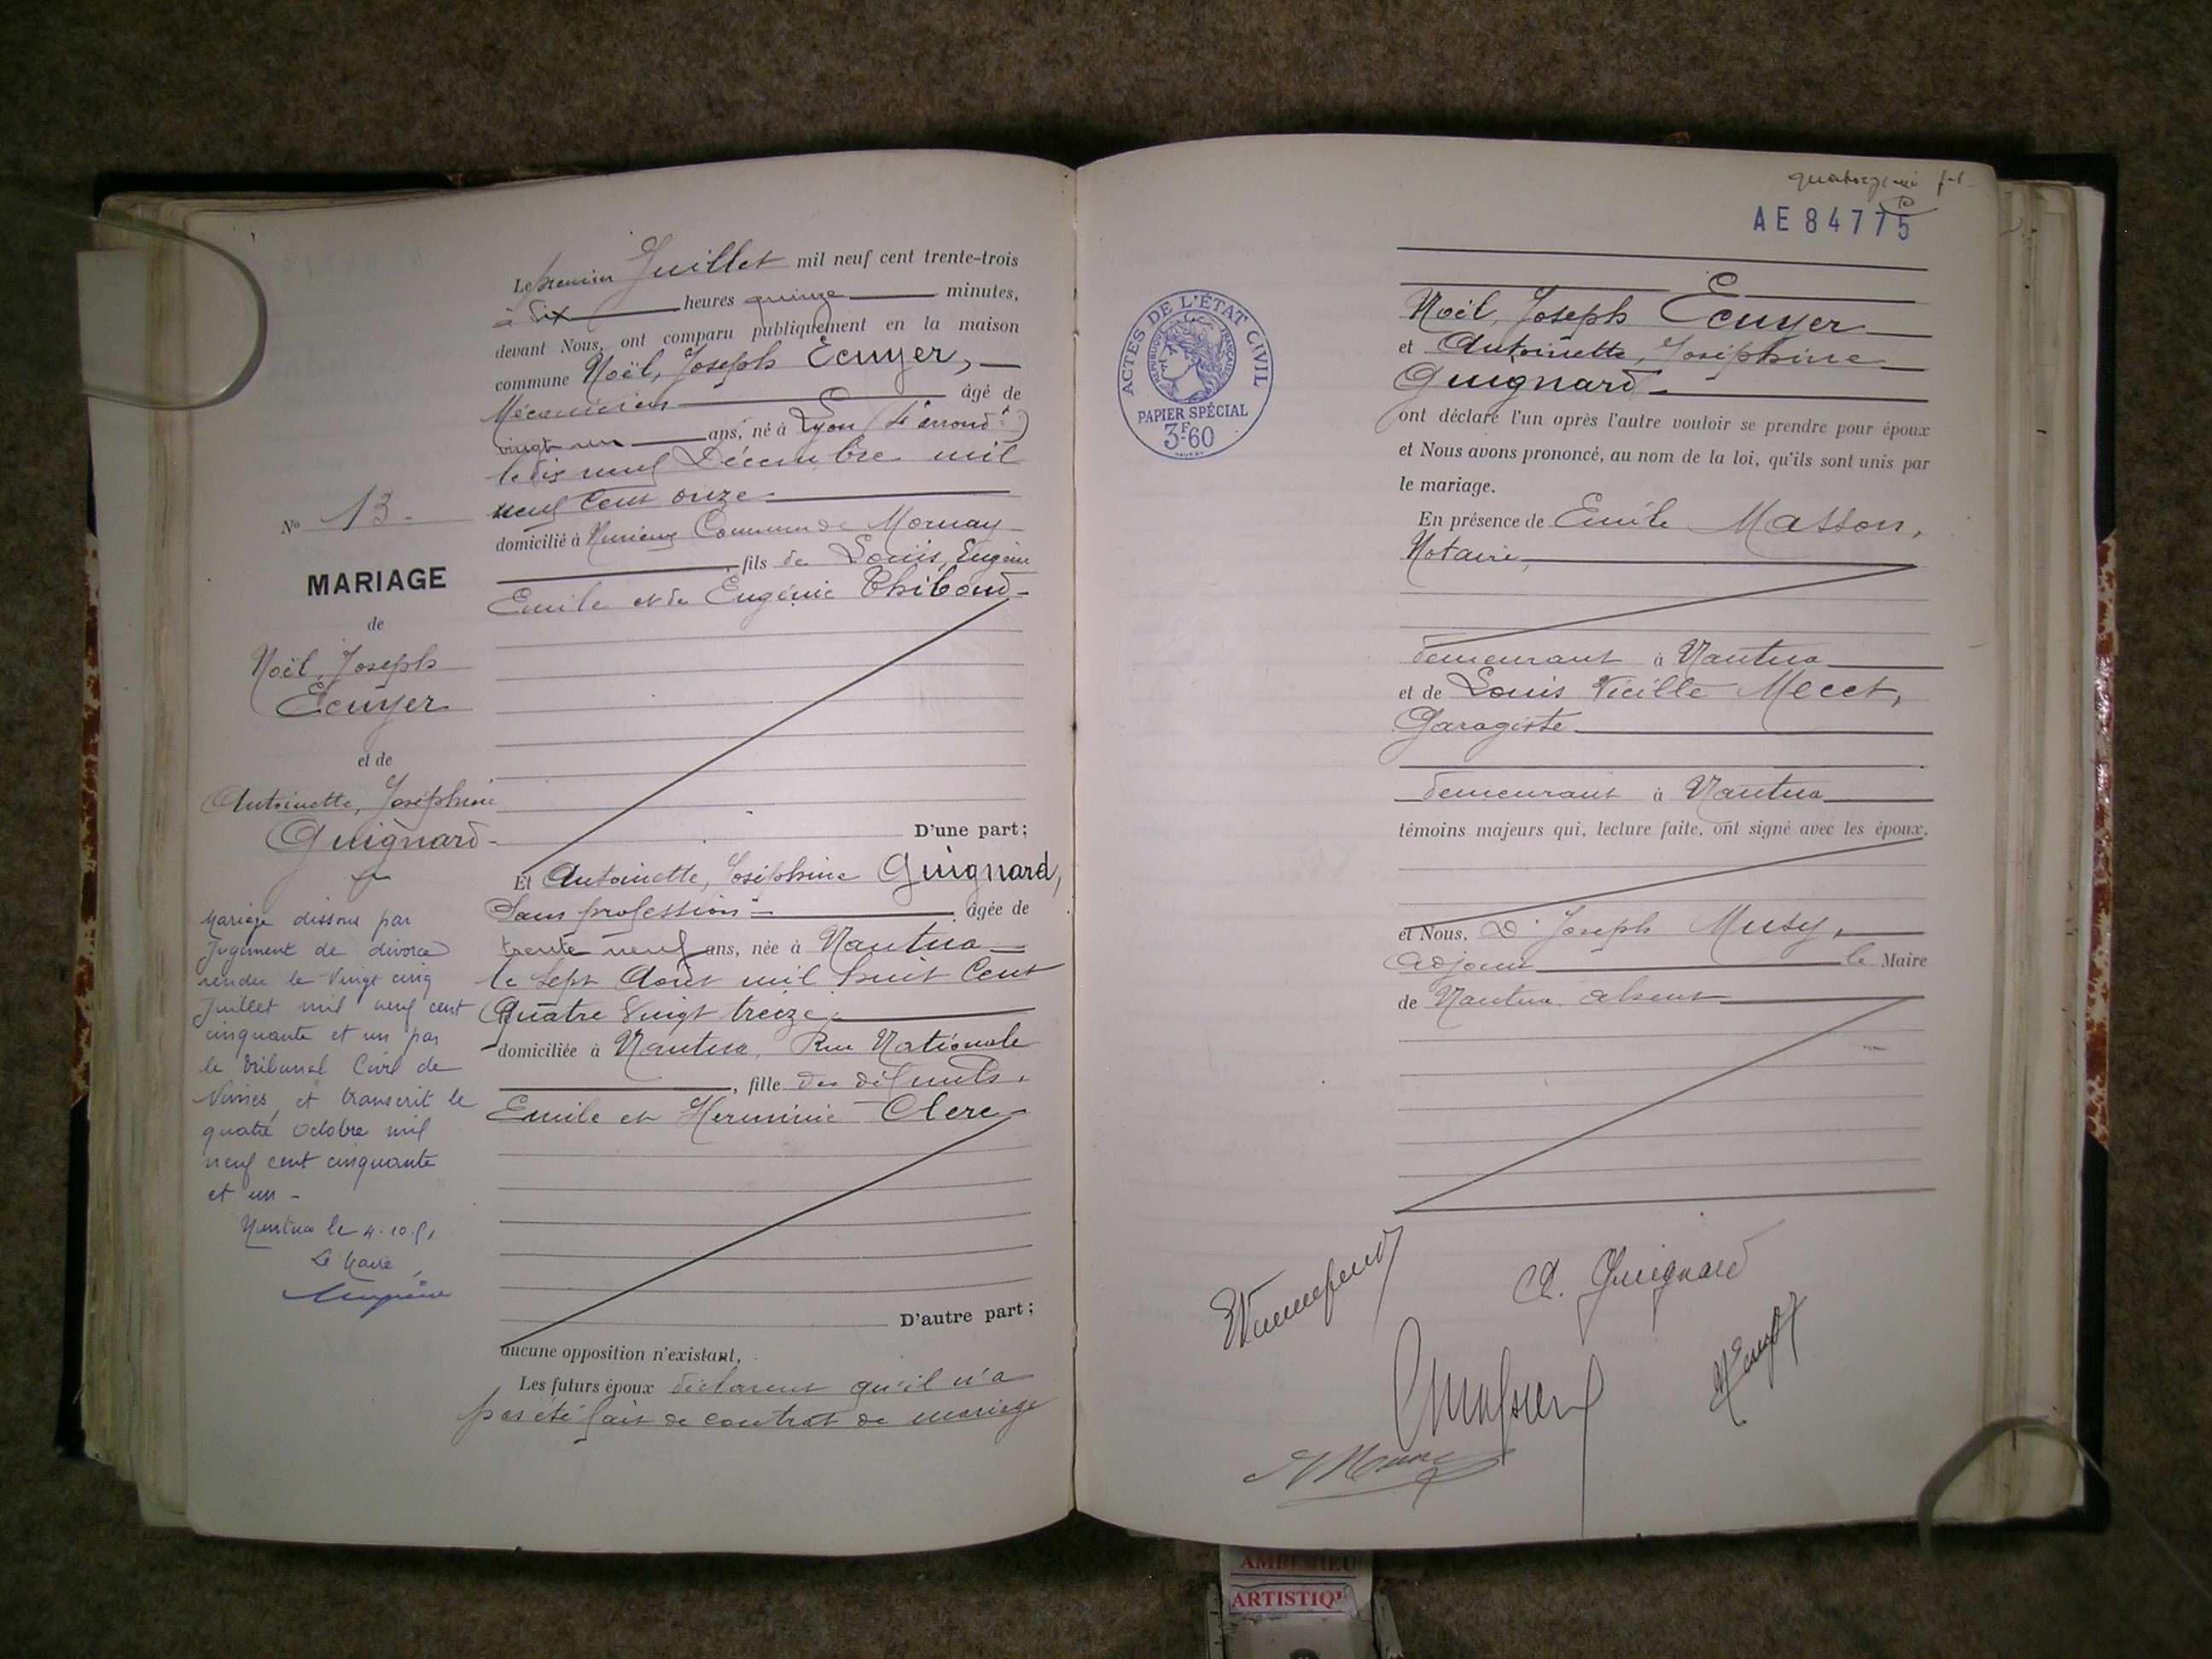 Le premier Juillet mil neuf cent trente-trois
à Six heures quinze minutes,
devant Nous, ont comparu publiquement en la maison
commune Noël, Joseph Ecuyer,
Mécanicien âgé de
vingt un ans, né à Lyon
le dix neuf Décembre mil
neuf Cent onze
domicilié à Nurieux Commune de Mornay
fils de Louis, Eugène
Emile et de Eugénie Thiboud
D'une part;
Et Antoinette, Joséphine Guignard,
Sans profession âgée de
trente neuf ans, née à Nantua
le Sept Août mil huit Cent
Quatre Vingt treize
domiciliée à Nantua, Rue Nationale
, fille des défunts,
Emile et Herminie Clerc
D'autre part;
aucune opposition n'existant,
Les futurs époux déclarent qu'il n'a
pas été fait de contrat de mariage
No 13.
MARIAGE
de
Noël, Joseph
Ecuyer
et de
Antoinette, Joséphine
Guignard
Mariage dissous par
Jugement de divorce
rendu le Vingt cinq
Juillet mil neuf cent
cinquante et un par
le tribunal Civil de
et transcrit le
quatre Octobre mil
neuf cent cinquante
et un -
Nantua le 4.10.51
Le Maire,
AE84775
ACTES DE L'ÉTAT CIVIL
RÉPUBLIQUE FRANÇAISE
PAPIER SPÉCIAL
3F60
Noël, Joseph Ecuyer
et Antoinette, Joséphine
Guignard
ont déclaré l'un après l'autre vouloir se prendre pour époux
et Nous avons prononcé, au nom de la loi, qu'ils sont unis par
le mariage.
En présence de Emile Masson,
Notaire,
demeurant à Nantua
et de Louis Vieille Mecet,
Garagiste
demeurant à Nantua
témoins majeurs qui, lecture faite, ont signé avec les époux,
et Nous, Dr Joseph Musy,
Adjoint le Maire
de Nantua absent
A. Guignard
AMBERIEU
ARTISTIQU